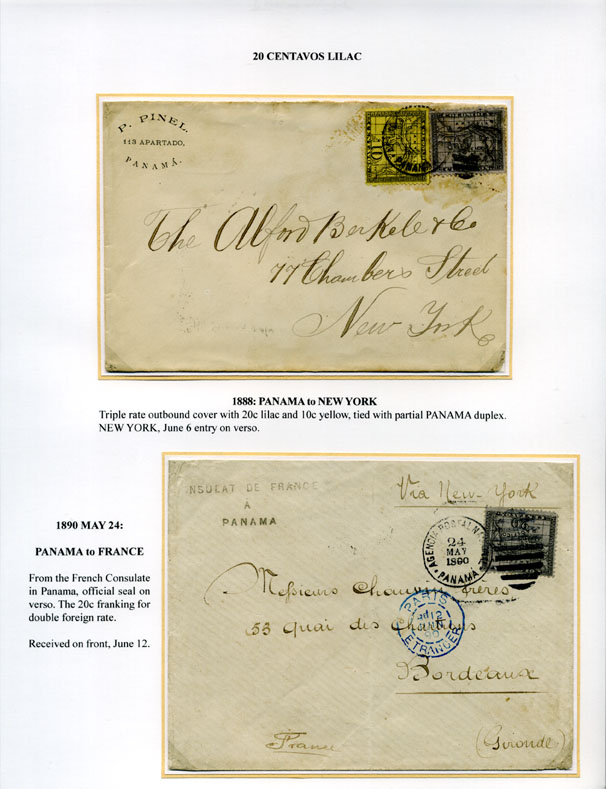 20 CENTAVOS LILAC
P. PINEL.
113 APARTADO,
PANAMÁ.
COLOMBIA
10
PANAMA
The Alford Berkele & Co
77 Chambers Street
New York
1888: PANAMA to NEW YORK
Triple rate outbound cover with 20c lilac and 10c yellow, tied with partial PANAMA duplex.
NEW YORK, June 6 entry on verso.
1890 MAY 24:
PANAMA to FRANCE
From the French Consulate
in Panama, official seal on
verso. The 20c franking for
double foreign rate.
Received on front, June 12.
NSULAT DE FRANCE
À
PANAMA
Via New-York
AGENCIA POSTAL NAL
24
MAY
1890
PANAMA
Messieurs Chauvin frères
PARIS
12
ETRANGER
53 Quai des Chartrons
Bordeaux
France
(Gironde)